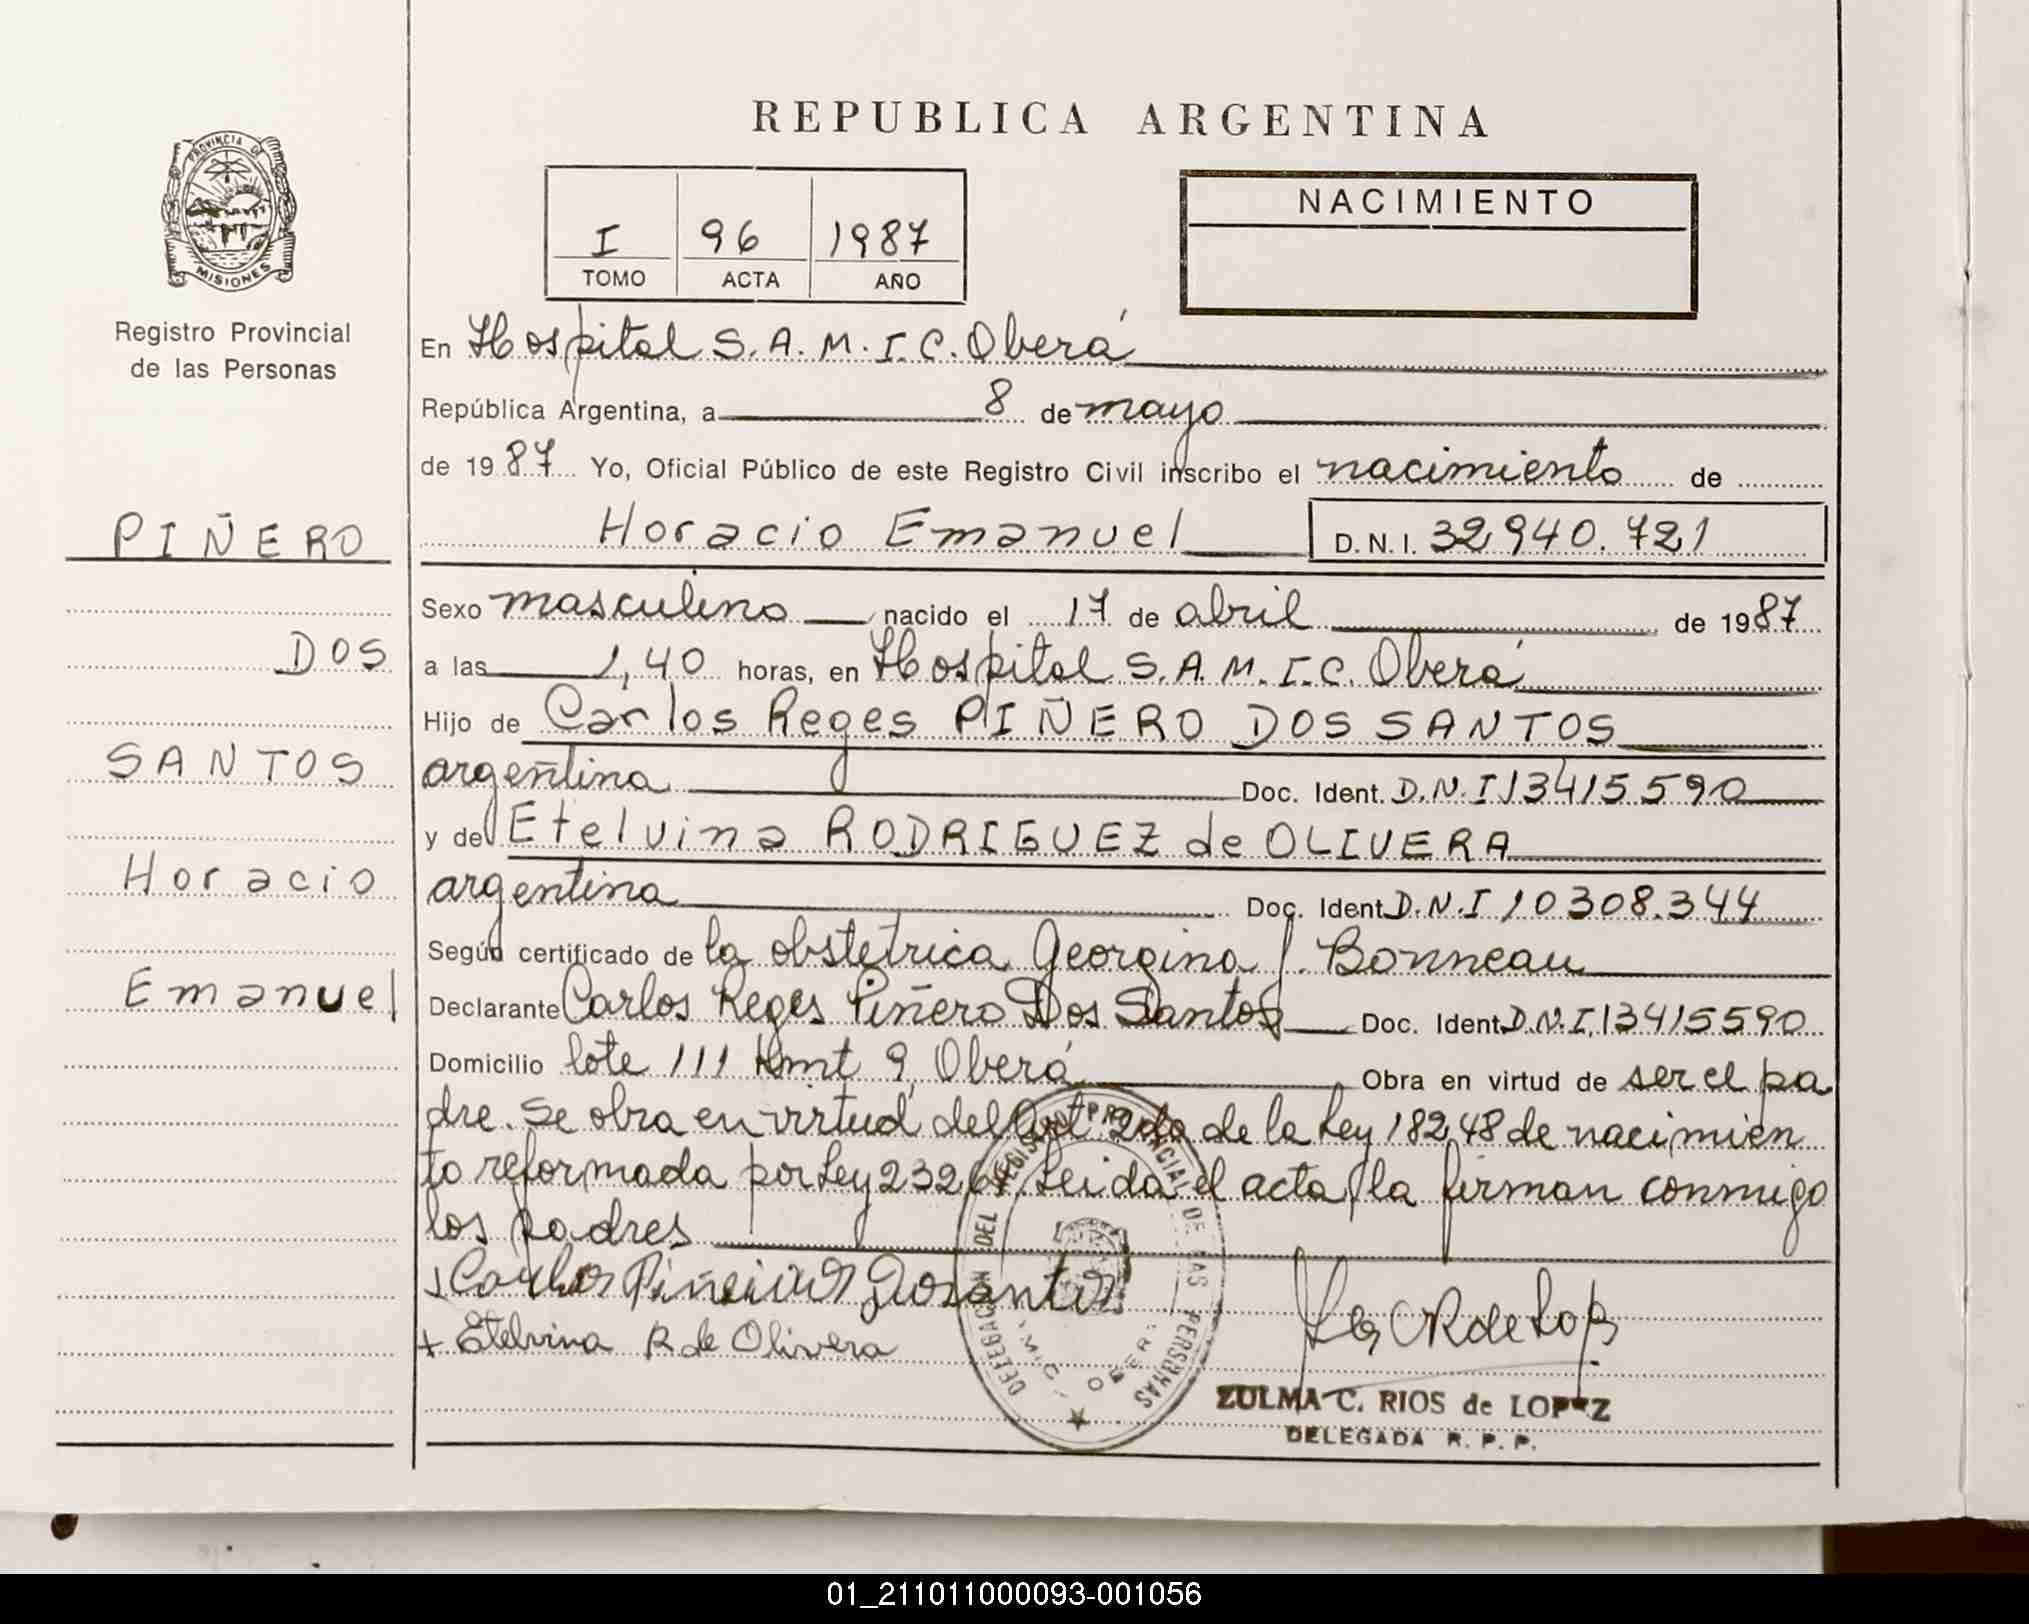 REPUBLICA ARGENTINA
PROVINCIA DE
MISIONES
Registro Provincial
de las Personas
I 96 1987
TOMO ACTA AÑO
NACIMIENTO
PIÑERO
DOS
SANTOS
Horacio
Emanuel
En Hospital S.A.M.I.C. Oberá
República Argentina, a 8 de mayo
de 1987 Yo, Oficial Público de este Registro Civil inscribo el nacimiento de
Horacio Emanuel D.N.I. 32.940.721
Sexo masculino nacido el 17 de abril de 1987
a las 1,40 horas, en Hospital S.A.M.I.C. Oberá
Hijo de Carlos Reges PIÑERO DOS SANTOS
argentina Doc. Ident. D.N.I 13415590
y de Etelvina RODRIGUEZ de OLIVERA
argentina Doc. Ident. D.N.I 10308.344
Según certificado de la obstetrica Georgina J. Bonneau
Declarante Carlos Reges Piñero Dos Santos Doc. Ident. D.N.I. 13415590
Domicilio lote 111 Kmt 9, Oberá Obra en virtud de ser el pa
dre. Se obra en virtud del Art 2do de la Ley 18248 de nacimien
to reformada por Ley 23264. Leida el acta, la firman conmigo
los padres
Etelvina R de Olivera
DELEGACION DEL REGISTRO PROVINCIAL DE LAS PERSONAS
ZULMA C. RIOS de LOPEZ
DELEGADA R. P. P.
01_211011000093-001056